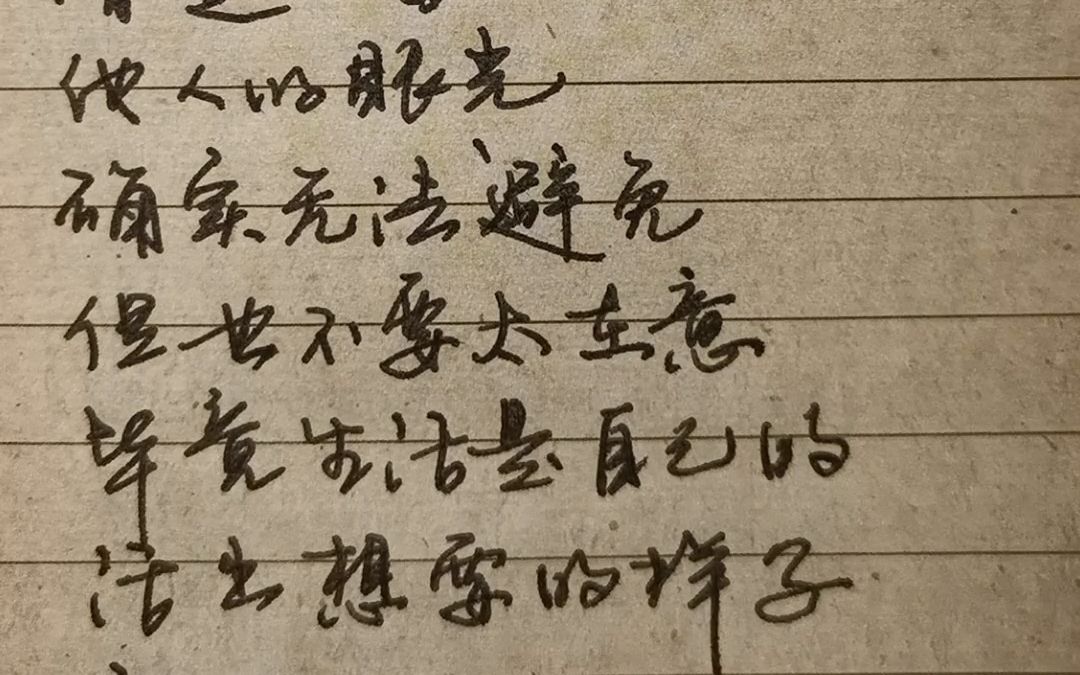 他人的眼光
确实无法避免
但也不要太在意
毕竟生活是自己的
活出想要的样子